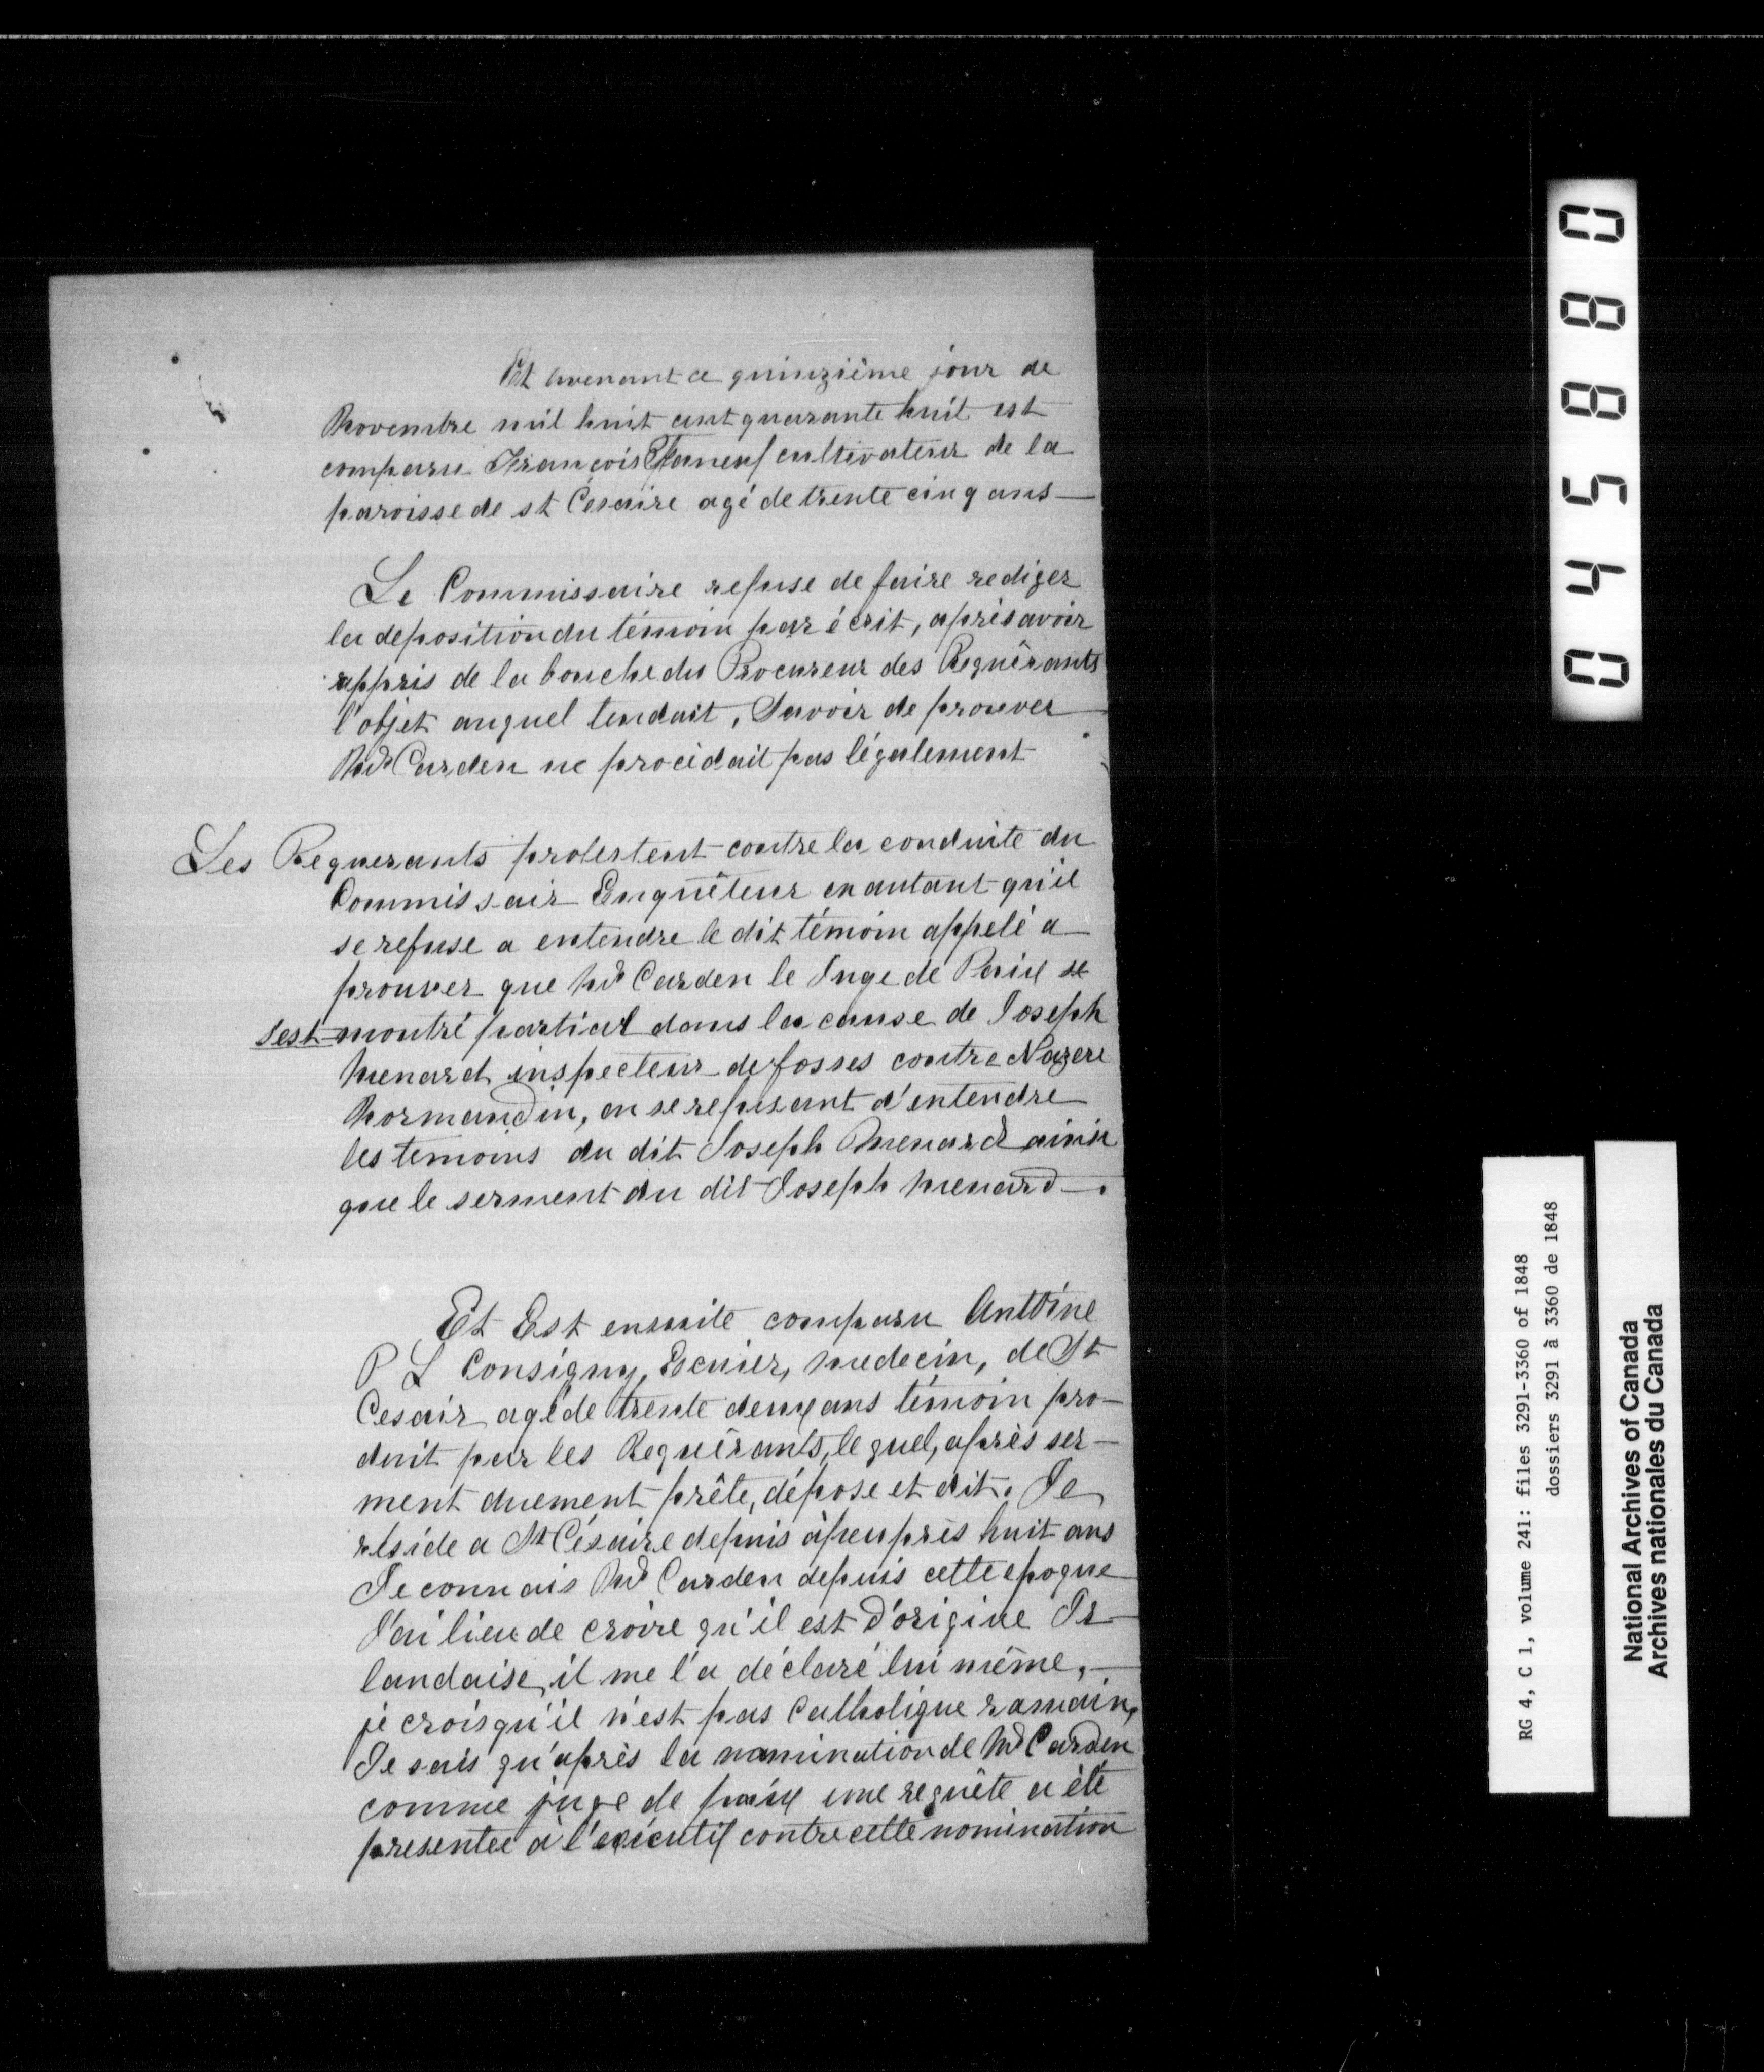 Et avenant ce quinzième jour de
Novembre mil huit cent quarante huit est
comparu François Phaneuf cultivateur de la
paroisse de st Césaire agé de trente cinq ans —
Le Commissaire refuse de faire rediger
la deposition du témoin par écrit, après avoir
appris de la bouche du Procureur des Requérants
l'objet auquel tendait, Savoir de prouver
Mr Carden ne procédait pas légalement
Les Requerants protestent contre la conduite du
Commissair Enquêteur en autant qu'il
se refuse a entendre le dit témoin appelé a
prouver que Mr Carden le Juge de Paix se
s'est montré partial dans la cause de Joseph
Menard inspecteur de fosses contre Nazere
Normandin, en se refusant d'entendre
les temoins du dit Joseph Menard ainsi
que le serment du dit Joseph Menard — .
Et Est ensuite comparu Antoine
P L Consigny, Ecuier, Medecin, de St
Cesair agé de trente deux ans témoin pro-
duit par les Requérants, le quel, après ser-
ment duement prête, dépose et dit. Je
réside a St Césaire depuis àpeuprès huit ans
Je connais Mr Carden depuis cette epoque
J'ai lieu de croire qu'il est d'origine Ir-
landaise, il me l'a déclaré lui même, —
je crois qu'il n'est pas Catholique romain,
Je sais qu'après la nomination de Mr Carden
comme juge de paix une requête a été
presentee à l'exécutif contre cette nomination
045880
RG 4, C 1, volume 241: files 3291-3360 of 1848
dossiers 3291 à 3360 de 1848
National Archives of Canada
Archives nationales du Canada